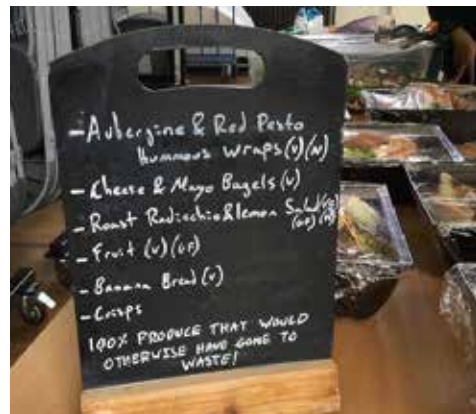 - Aubergine & Red Pesto
Hummous Wraps (V) (N)
- Cheese & Mayo Bagels (V)
- Roast Radischio & lemon Salad
(GF) (N)
- Fruit (V) (GF)
- Banana Bread (V)
- Crisps
100% PRODUCE THAT WOULD
OTHERWISE HAVE GONE TO
WASTE!